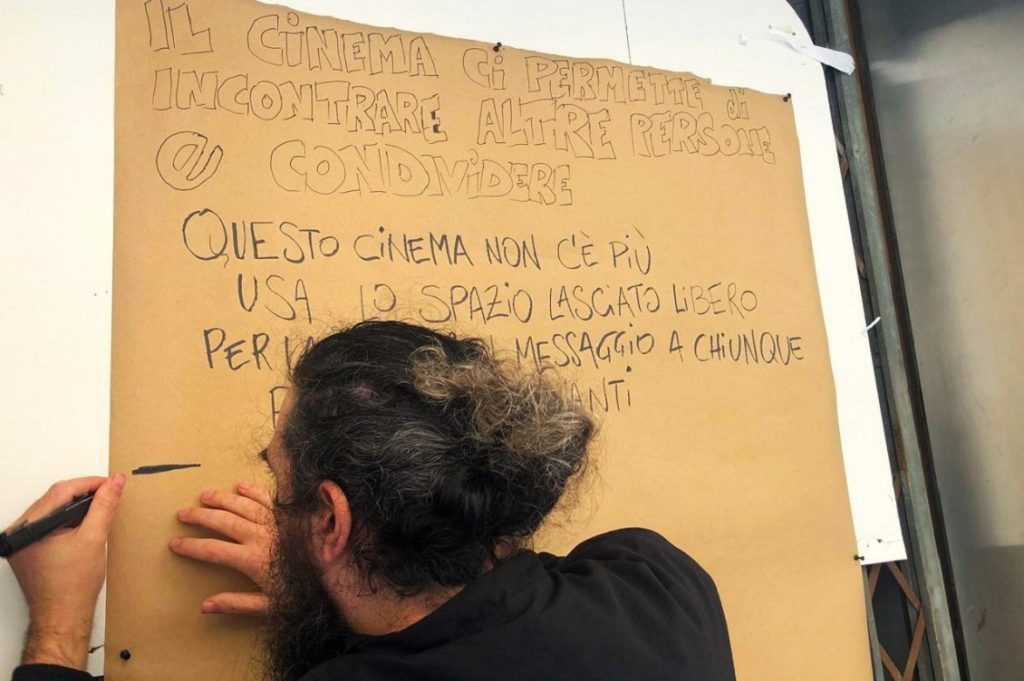 IL CINEMA Ci PERMETTE di
INCONTRARE ALTRE PERSONE
e CONDIVIDERE
QUESTO CINEMA NON C'È PIÙ
USA LO SPAZIO LASCIATO LIBERO
PER MESSAGGIO A CHIUNQUE